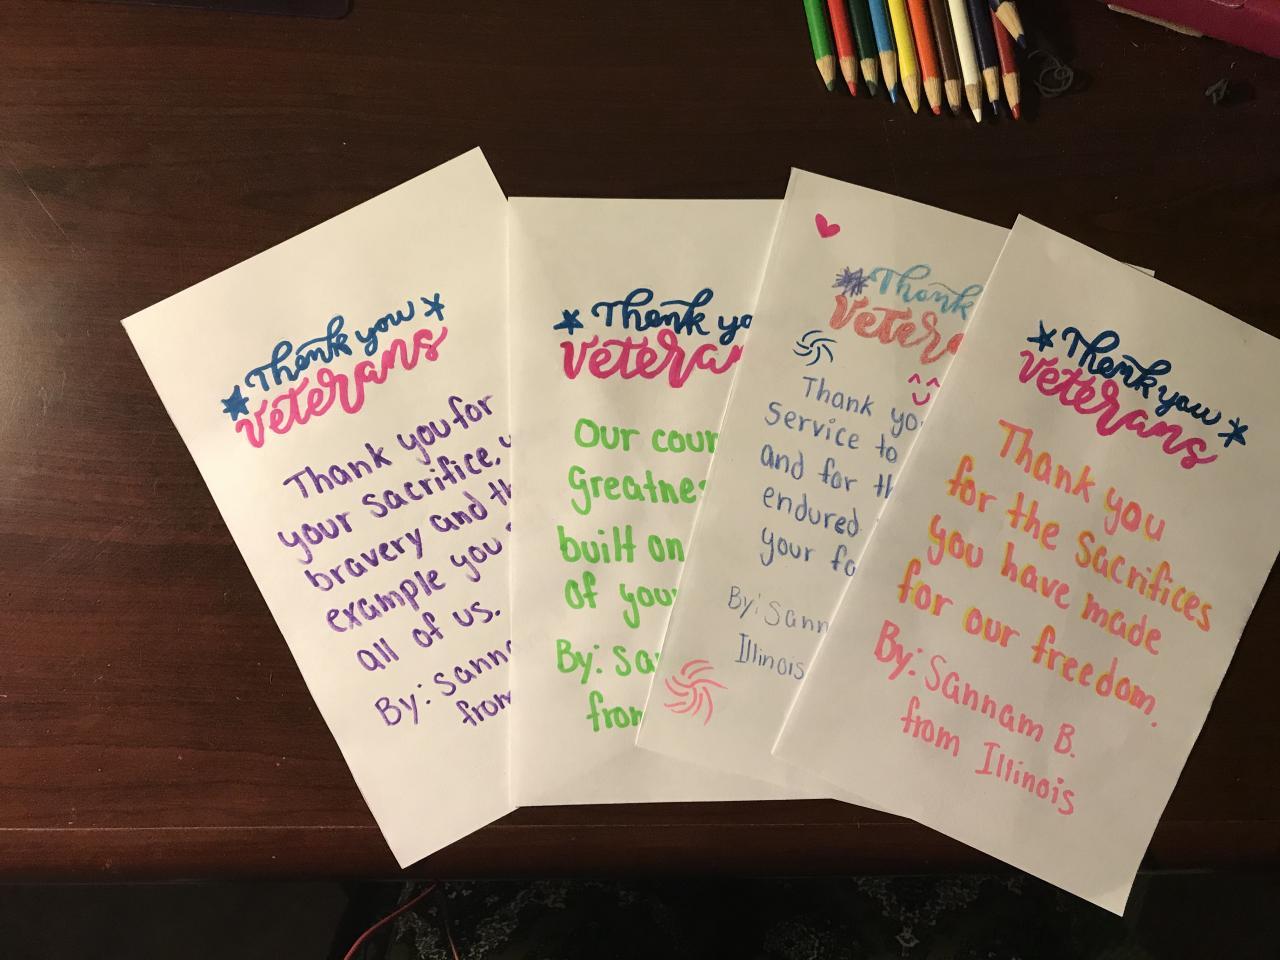 Thank you
veterans
Thank you for
your sacrifice,
bravery and
example you
all of us.
By:
from
Thank
Veterans
Our
Greatness
built on
of your
By:
from
Thank
Veterans
Thank you
service to
and for
endured
your
By:
Illinois
Thank you
veterans
Thank you
for the Sacrifices
you have made
for our freedom.
By: Sannam B.
from Illinois